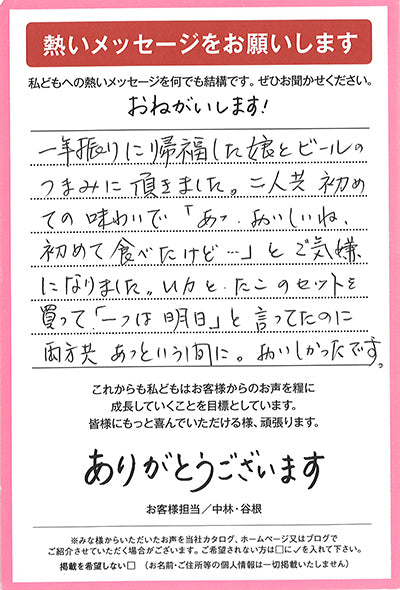 熱いメッセージをお願いします
私どもへの熱いメッセージを何でも結構です。ぜひお聞かせください。
おねがいします!
一年振りに帰福した娘とビールの
つまみに頂きました。二人共 初め
ての味わいで「あっ、おいしいね、
初めて食べたけど…」とご気嫌
になりました。いかと、たこのセットを
買って「一つは明日」と言ってたのに
両方共 あっという間に。おいしかったです。
これからも私どもはお客様からのお声を糧に
成長していくことを目標としています。
皆様にもっと喜んでいただける様、頑張ります。
ありがとうございます
お客様担当/中林・谷根
※みな様からいただいたお声を当社カタログ、ホームページ又はブログで
ご紹介させていただく場合がございます。ご希望されない方は□に✓を入れて下さい。
掲載を希望しない□ (お名前・ご住所等の個人情報は一切掲載いたしません)